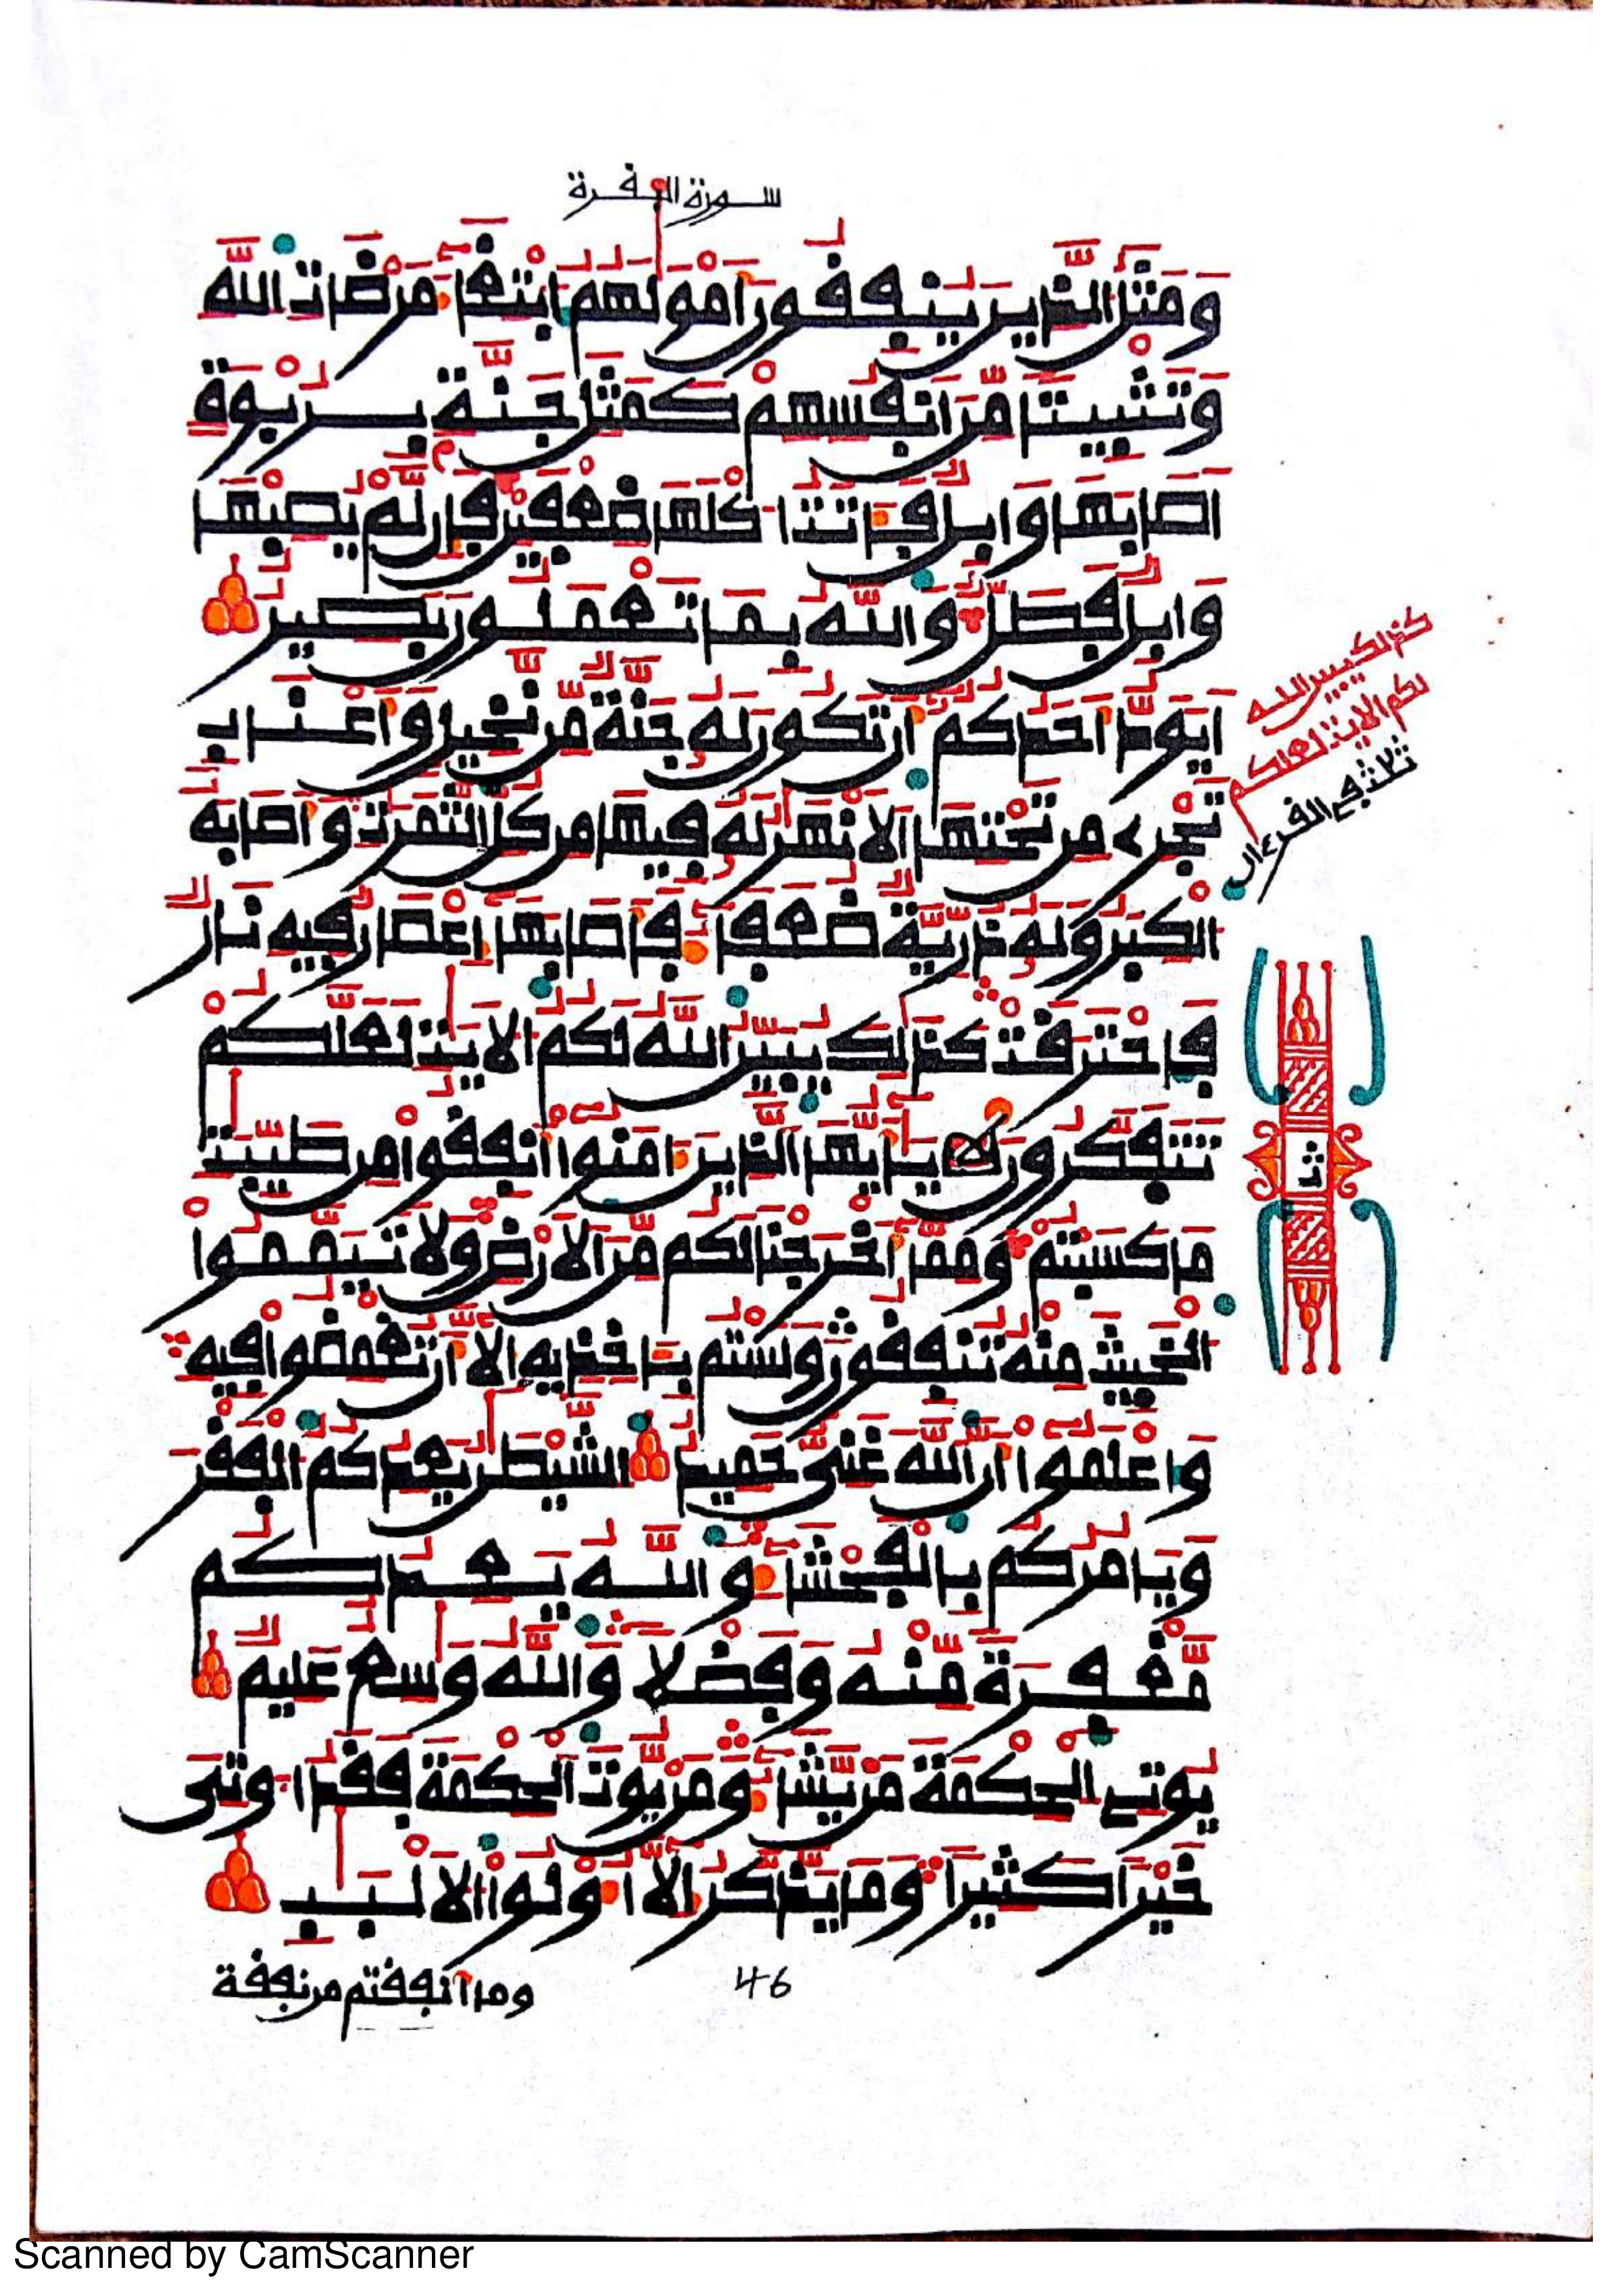 سورة البقرة
وَمَثَلُ الذِينَ يُنفِقُونَ أَمْوَٰلَهُمُ ابْتِغَآءَ مَرْضَاتِ اللَّهِ
وَتَثْبِيتاً مِّنَ انفُسِهِمْ كَمَثَلِ جَنَّةِۢ بِرُبْوَةٍ
اَصَابَهَا وَابِلٌ فَـَٔاتَتُ اكْلَهَا ضِعْفَيْنِ فَإِن لَّمْ يُصِبْهَا
وَابِلٌ فَطَلٌّ وَاللَّهُ بِمَا تَعْمَلُونَ بَصِيرٌ
اَيَوَدُّ أَحَدُكُمُ أَن تَكُونَ لَهُ جَنَّةٌ مِّن نَّخِيلٍ وَأَعْنَابٍ
تَجْرِے مِن تَحْتِهَا اَلَانْهَٰرُ لَهُ فِيهَا مِن كُلِّ الثَّمَرَٰتِ وَأَصَابَهُ
الْكِبَرُ وَلَهُ ذُرِّيَّةٌ ضُعَفَآءُ فَأَصَابَهَا إِعْصَارٌ فِيهِ نَارٌ
فَاحْتَرَقَتْ كَذَٰلِكَ يُبَيِّنُ اللَّهُ لَكُمُ الَايَٰتِ لَعَلَّكُمْ
تَتَفَكَّرُونَ يَٰٓأَيُّهَا الذِينَ ءَامَنُوٓا أَنفِقُوا مِن طَيِّبَٰتِ
مَا كَسَبْتُمْ وَمِمَّآ أَخْرَجْنَا لَكُم مِّنَ الَارْضِ وَلَا تَيَمَّمُوا
الْخَبِيثَ مِنْهُ تُنفِقُونَ وَلَسْتُم بِـَٔاخِذِيهِ إِلَّآ أَن تُغْمِضُوا فِيهِ
وَاعْلَمُوٓا أَنَّ اللَّهَ غَنِيٌّ حَمِيدٌ الشَّيْطَٰنُ يَعِدُكُمُ الْفَقْرَ
وَيَامُرُكُم بِالْفَحْشَآءِ وَاللَّهُ يَعِدُكُم
مَّغْفِرَةً مِّنْهُ وَفَضْلاً وَاللَّهُ وَٰسِعٌ عَلِيمٌ
يُوتِے الْحِكْمَةَ مَنْ يَّشَآءُ وَمَنْ يُّوتَ الْحِكْمَةَ فَقَدُ اوتِىَ
خَيْراً كَثِيراً وَمَا يَذَّكَّرُ إِلَّآ أُوْلُوا الَالْبَٰبِ
كذلك يبين الله
لكم الايت لعلكم
ثلث القرءان
ثمن
وما أنفقتم من نفقة
46
Scanned by CamScanner